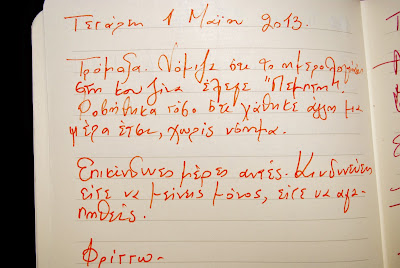 Τετάρτη 1 Μαΐου 2013.
Τρόμαξα. Νόμιζα ότι το ημερολόγιο
στην κουζίνα έλεγε "Πέμπτη".
Φοβήθηκα τόσο ότι χάθηκε άλλη μια
μέρα έτσι, χωρίς νόημα.
Επικίνδυνες μέρες αυτές. Κινδυνεύεις
είτε να μείνεις μόνος, είτε να αγα-
πηθείς.
Φρίττω.